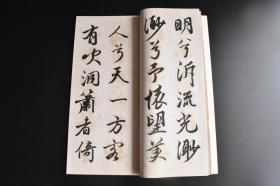 明兮泝流光渺
渺兮予懷望美
人兮天一方客
有吹洞簫者倚